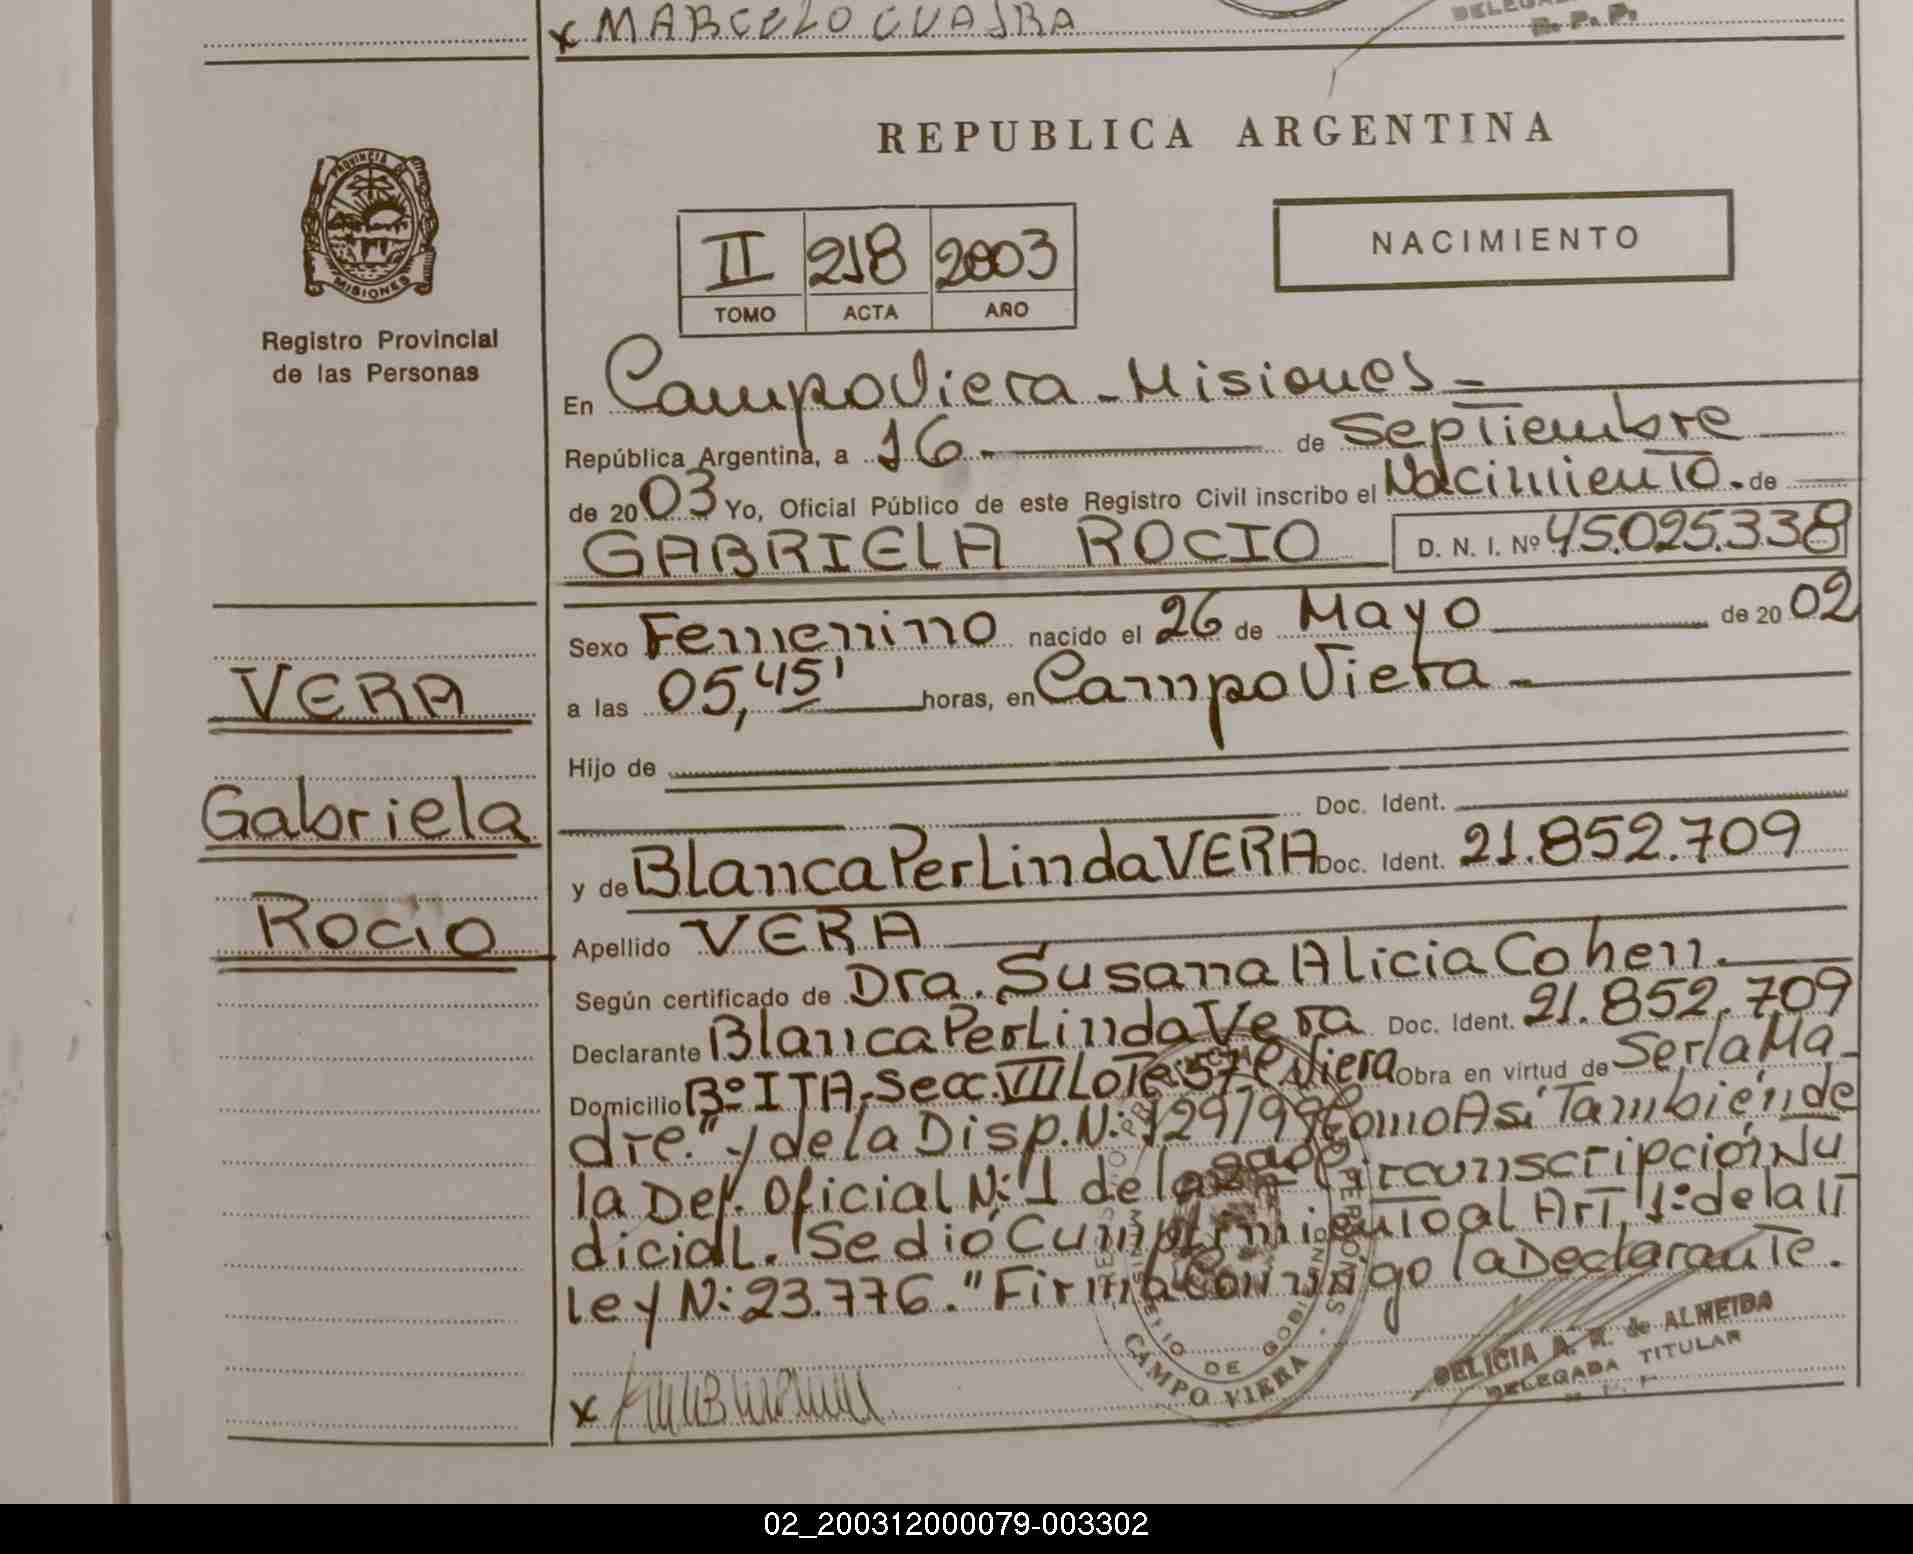 x MARCELO CUADRA
R. P. P.
PROVINCIA DE
MISIONES
Registro Provincial
de las Personas
REPUBLICA ARGENTINA
II 218 2003
TOMO ACTA AÑO
NACIMIENTO
En Campo Viera - Misiones -
República Argentina, a 16 de Septiembre
de 2003 Yo, Oficial Público de este Registro Civil inscribo el Nacimiento. de
GABRIELA ROCIO D. N. I. Nº 45.025.338
Sexo Femenino nacido el 26 de Mayo de 2002
a las 05,45' horas, en Campo Viera -
Hijo de
Doc. Ident.
y de Blanca PerLinda VERA Doc. Ident. 21.852.709
Apellido VERA
Según certificado de Dra. Susana Alicia Cohen.
Declarante Blanca PerLinda Vera Doc. Ident. 21.852.709
Domicilio Bº ITA-Secc. VIII Lote 57 C. Viera Obra en virtud de Ser la Ma-
dre." y de la Disp. Nº 129/99 Como Así También de
la Def. Oficial Nº 1 de la Circunscripción Ju
dicial. Se dió Cumplimiento al Art. 1º de la
Ley Nº 23.776. "Firma Conmigo la Declarante.
VERA
Gabriela
Rocio
x
CAMPO VIERA
DELICIA A. R. de ALMEIDA
DELEGADA TITULAR
02_200312000079-003302